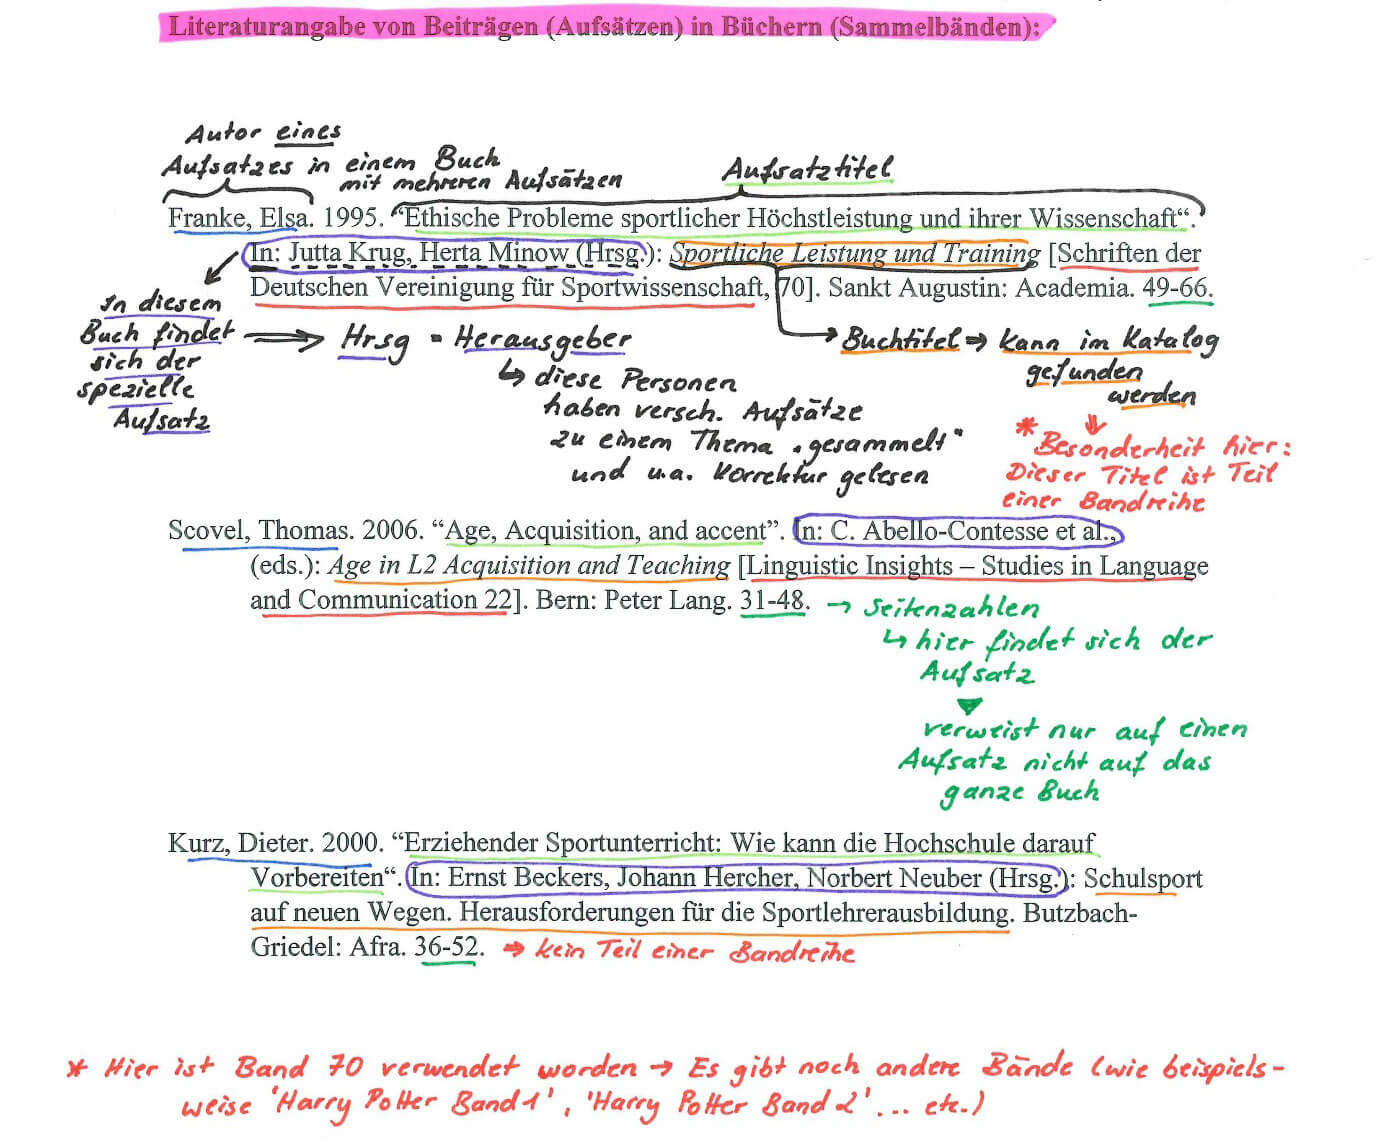 Literaturangabe von Beiträgen (Aufsätzen) in Büchern (Sammelbänden):
Autor eines
Aufsatzes in einem Buch
mit mehreren Aufsätzen
Aufsatztitel
Franke, Elsa. 1995. “Ethische Probleme sportlicher Höchstleistung und ihrer Wissenschaft“.
In: Jutta Krug, Herta Minow (Hrsg.): Sportliche Leistung und Training [Schriften der
Deutschen Vereinigung für Sportwissenschaft, 70]. Sankt Augustin: Academia. 49-66.
In diesem
Buch findet
sich der
spezielle
Aufsatz
Hrsg = Herausgeber
↳ diese Personen
haben versch. Aufsätze
zu einem Thema „gesammelt“
und u.a. Korrektur gelesen
Buchtitel ⇒ kann im Katalog
gefunden
werden
* Besonderheit hier:
Dieser Titel ist Teil
einer Bandreihe
Scovel, Thomas. 2006. “Age, Acquisition, and accent”. In: C. Abello-Contesse et al.,
(eds.): Age in L2 Acquisition and Teaching [Linguistic Insights – Studies in Language
and Communication 22]. Bern: Peter Lang. 31-48.
→ Seitenzahlen
↳ hier findet sich der
Aufsatz
verweist nur auf einen
Aufsatz nicht auf das
ganze Buch
Kurz, Dieter. 2000. “Erziehender Sportunterricht: Wie kann die Hochschule darauf
Vorbereiten“. In: Ernst Beckers, Johann Hercher, Norbert Neuber (Hrsg.): Schulsport
auf neuen Wegen. Herausforderungen für die Sportlehrerausbildung. Butzbach-
Griedel: Afra. 36-52. ⇒ kein Teil einer Bandreihe
* Hier ist Band 70 verwendet worden → Es gibt noch andere Bände (wie beispiels-
weise 'Harry Potter Band 1', 'Harry Potter Band 2' ... etc.)